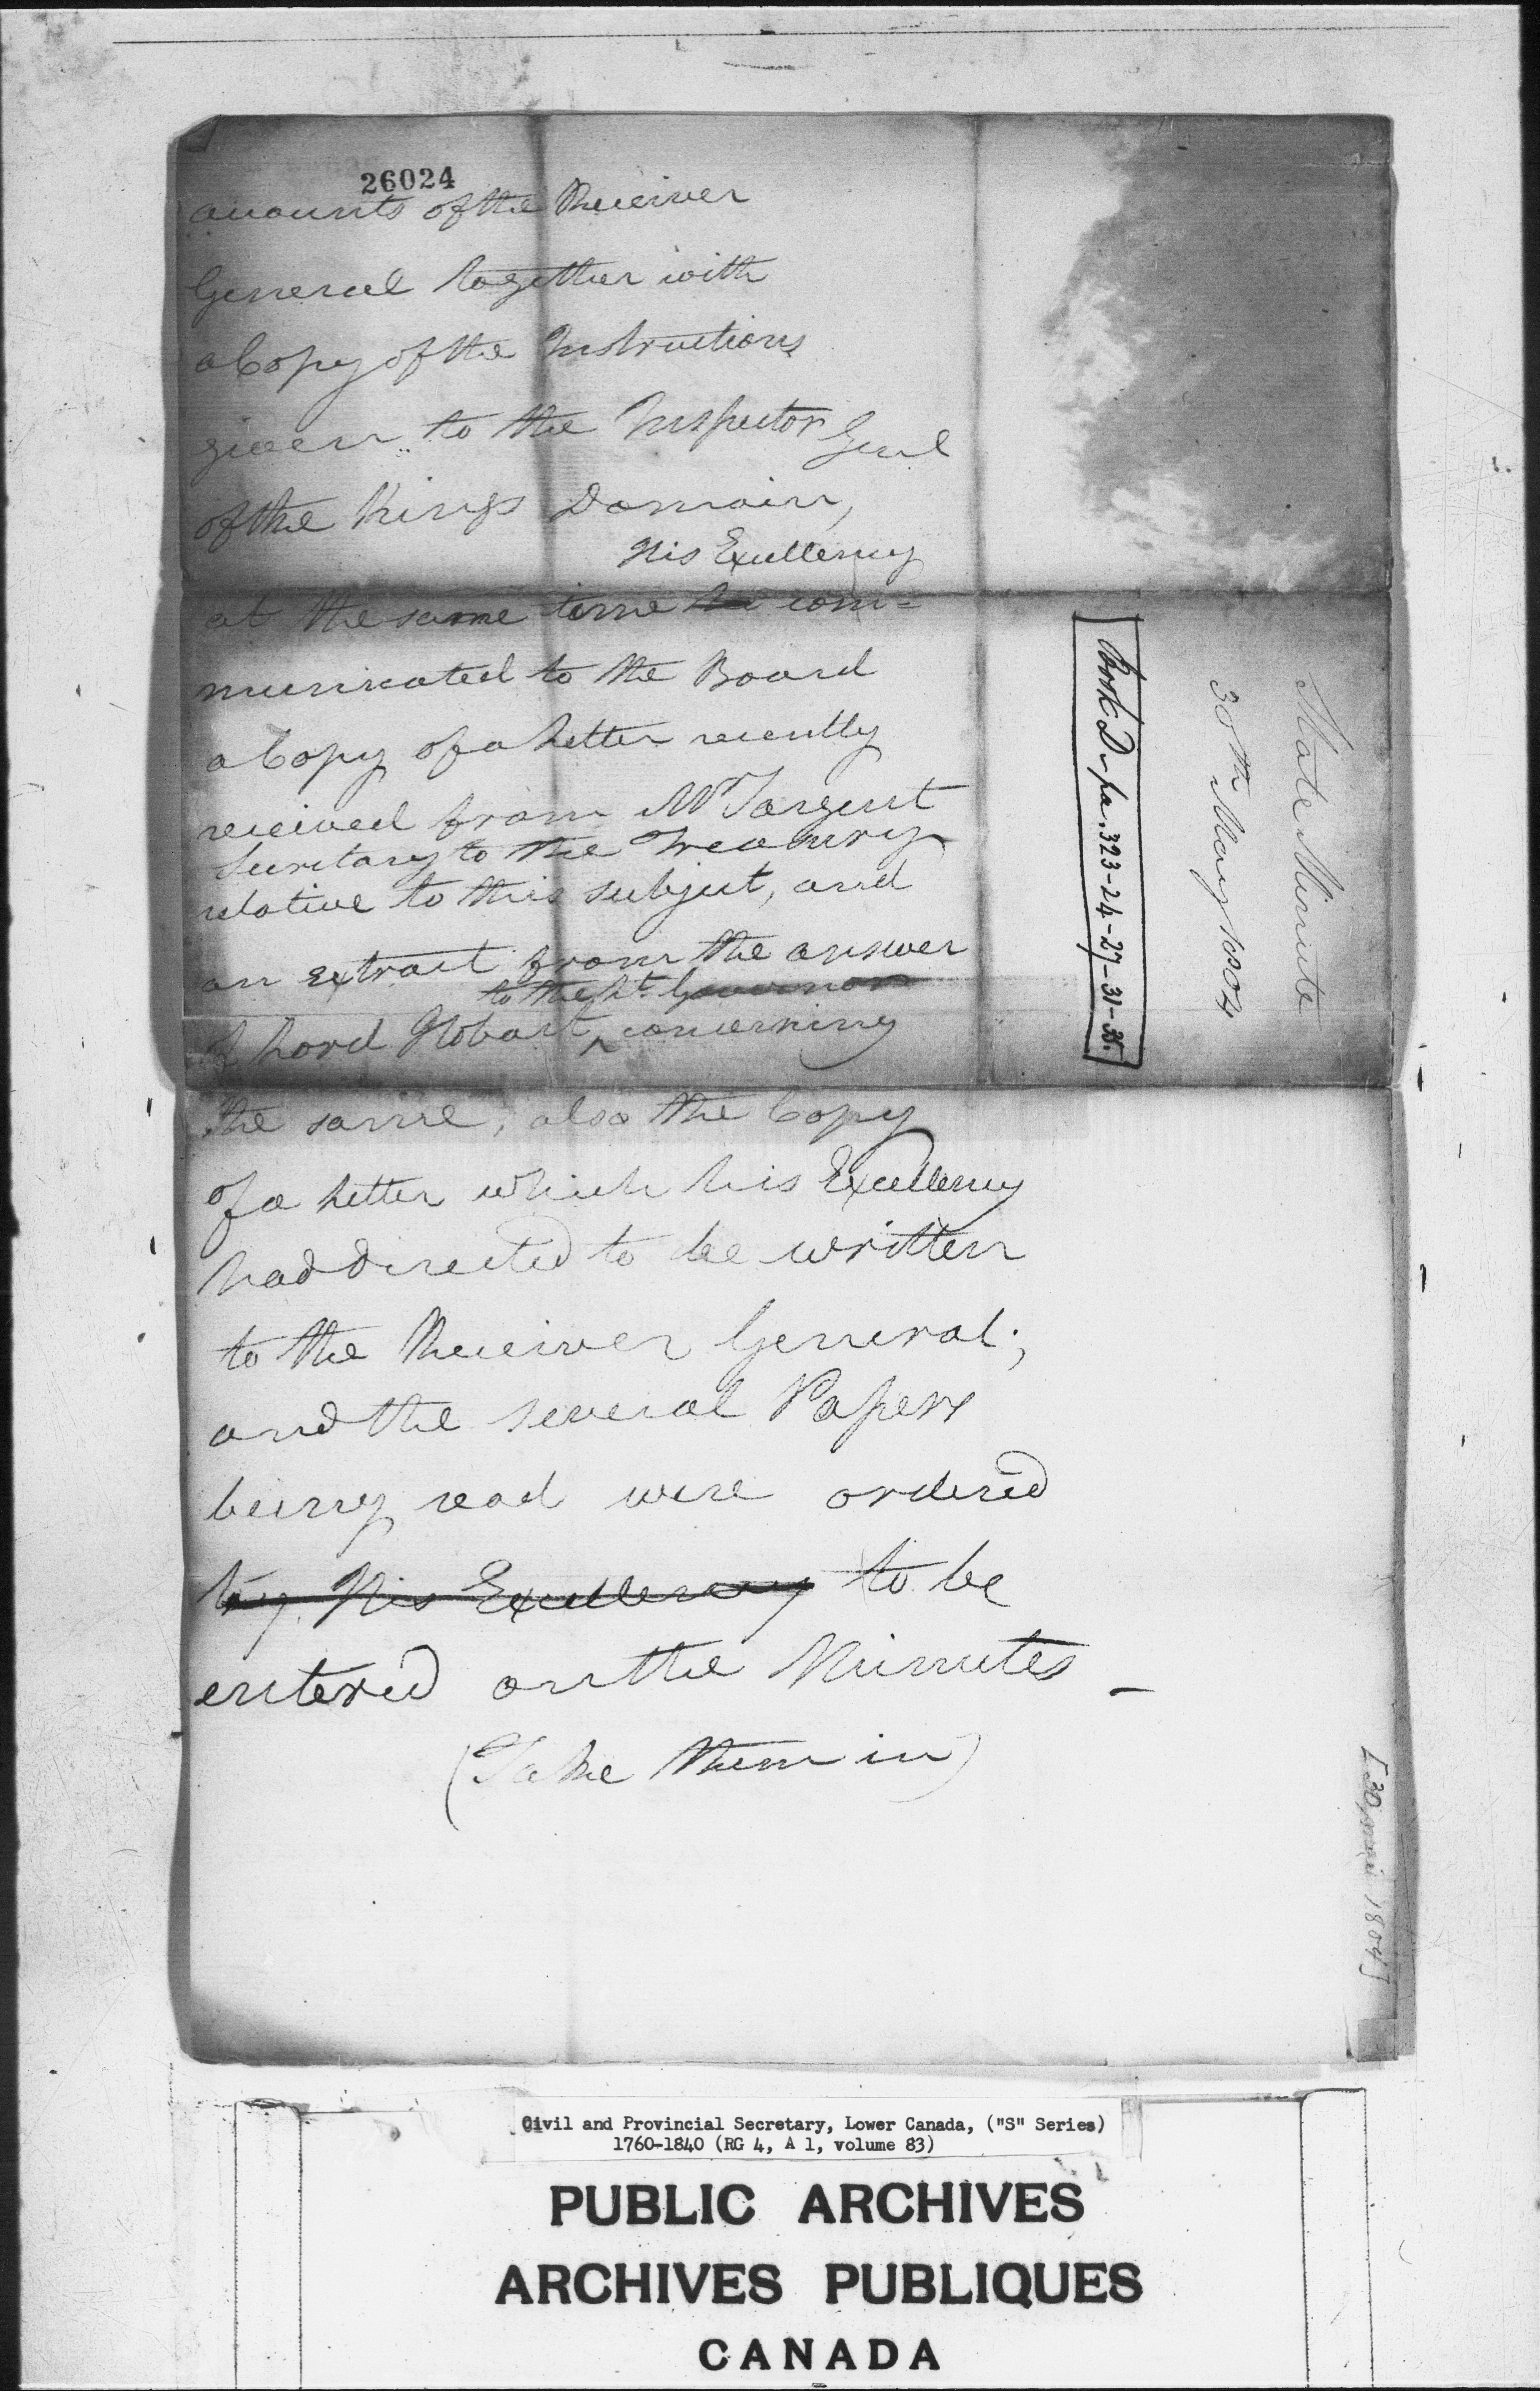 26024
accounts of the Receiver
General together with
a Copy of the Instructions
given to the Inspector Genl
of the Kings Domain,
His Excellency
at the same time he com=
municated to the Board
a Copy of a Letter recently
received from Mr Sargent
Secretary to the Treasury
relative to this subject, and
an extract from the answer
to the Lt. Governor
of Lord Hobart, concerning
the same; also the Copy
of a Letter which his Excellency
had directed to be written
to the Receiver General;
and the several Papers
being read were ordered
by His Excellency to be
entered on the Minutes -
(Take them in)
State Minute
30th May 1804
Book D - pa. 323-24-27-31-35.
[30 mai 1804]
Civil and Provincial Secretary, Lower Canada, ("S" Series)
1760-1840 (RG 4, A 1, volume 83)
PUBLIC ARCHIVES
ARCHIVES PUBLIQUES
CANADA